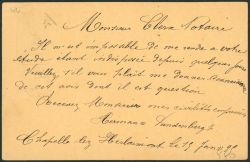 Monsieur Clerx Notaire
Il m'est impossible de me rendre à votre
étude étant indisposée depuis quelques jours
Veuillez s'il vous plait me donner connaissance
de cet avis dont il est question
Recevez Monsieur mes civilités empressées
Hermans
Chapelle lez Herlaimont le 15 Janv